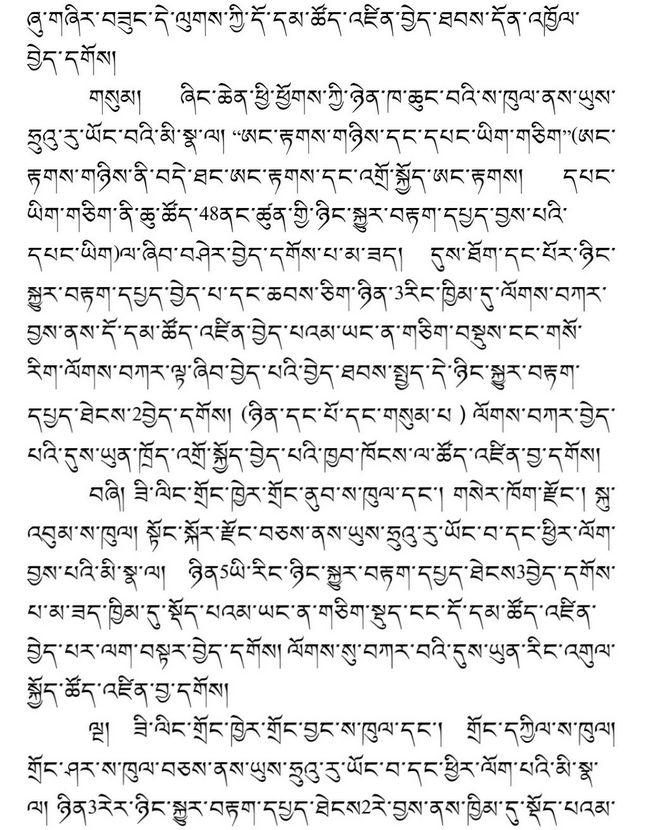 ཞུ་གཞིར་བཟུང་དེ་ལུགས་ཀྱི་དོ་དམ་ཚོད་འཛིན་བྱེད་ཐབས་དོན་འཁྱོལ་
བྱེད་དགོས།
གསུམ། ཞིང་ཆེན་ཕྱི་ཕྱོགས་ཀྱི་ཉེན་ཁ་ཆུང་བའི་ས་ཁུལ་ནས་ཡུས་
ཧྲུའུ་རུ་ཡོང་བའི་མི་སྣ་ལ། “ཨང་རྟགས་གཉིས་དང་དཔང་ཡིག་གཅིག”(ཨང་
རྟགས་གཉིས་ནི་བདེ་ཐང་ཨང་རྟགས་དང་འགྲོ་སྐྱོད་ཨང་རྟགས། དཔང་
ཡིག་གཅིག་ནི་ཆུ་ཚོད་48ནང་ཚུན་གྱི་ཉིང་སྐྱུར་བརྟག་དཔྱད་བྱས་པའི་
དཔང་ཡིག)ལ་ཞིབ་བཤེར་བྱེད་དགོས་པ་མ་ཟད། དུས་ཐོག་དང་པོར་ཉིང་
སྐྱུར་བརྟག་དཔྱད་བྱེད་པ་དང་ཆབས་ཅིག་ཉིན་3རིང་ཁྱིམ་དུ་ལོགས་བཀར་
བྱས་ནས་དོ་དམ་ཚོད་འཛིན་བྱེད་པའམ་ཡང་ན་གཅིག་བསྡུས་ངང་གསོ་
རིག་ལོགས་བཀར་ལྟ་ཞིབ་བྱེད་པའི་བྱེད་ཐབས་སྤྱད་དེ་ཉིང་སྐྱུར་བརྟག་
དཔྱད་ཐེངས་2བྱེད་དགོས། (ཉིན་དང་པོ་དང་གསུམ་པ ) ལོགས་བཀར་བྱེད་
པའི་དུས་ཡུན་ཁྲོད་འགྲོ་སྐྱོད་བྱེད་པའི་ཁྱབ་ཁོངས་ལ་ཚོད་འཛིན་བྱ་དགོས།
བཞི། ཟི་ལིང་གྲོང་ཁྱེར་གྲོང་ནུབ་ས་ཁུལ་དང་། གསེར་ཁོག་རྫོང་། སྐུ་
འབུམ་ས་ཁུལ། སྟོང་སྐོར་རྫོང་བཅས་ནས་ཡུས་ཧྲུའུ་རུ་ཡོང་བ་དང་ཕྱིར་ལོག་
བྱས་པའི་མི་སྣ་ལ། ཉིན5ཡི་རིང་ཉིང་སྐྱུར་བརྟག་དཔྱད་ཐེངས3བྱེད་དགོས་
པ་མ་ཟད་ཁྱིམ་དུ་སྡོད་པའམ་ཡང་ན་གཅིག་སྡུད་ངང་དོ་དམ་ཚོད་འཛིན་
བྱེད་པར་ལག་བསྟར་བྱེད་དགོས། ལོགས་སུ་བཀར་བའི་དུས་ཡུན་རིང་འགུལ་
སྐྱོད་ཚོད་འཛིན་བྱ་དགོས།
ལྔ། ཟི་ལིང་གྲོང་ཁྱེར་གྲོང་བྱང་ས་ཁུལ་དང་། གྲོང་དཀྱིལ་ས་ཁུལ།
གྲོང་ཤར་ས་ཁུལ་བཅས་ནས་ཡུས་ཧྲུའུ་རུ་ཡོང་བ་དང་ཕྱིར་ལོག་པའི་མི་སྣ་
ལ། ཉིན3རེར་ཉིང་སྐྱུར་བརྟག་དཔྱད་ཐེངས2རེ་བྱས་ནས་ཁྱིམ་དུ་སྡོད་པའམ་